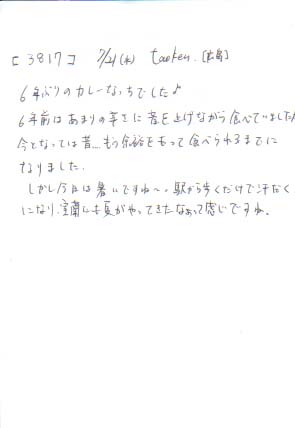 [3817] 7/21(木) taeken.[広島]
6年ぶりのカレーなっちでした♪
6年前はあまりの辛さに音を上げながら食べていました!
今となっては昔...もう余裕をもって食べられるまでに
なりました.
しかし今日は暑いですね〜。駅から歩くだけで汗だく
になり、室蘭にも夏がやってきたなあって感じですね。